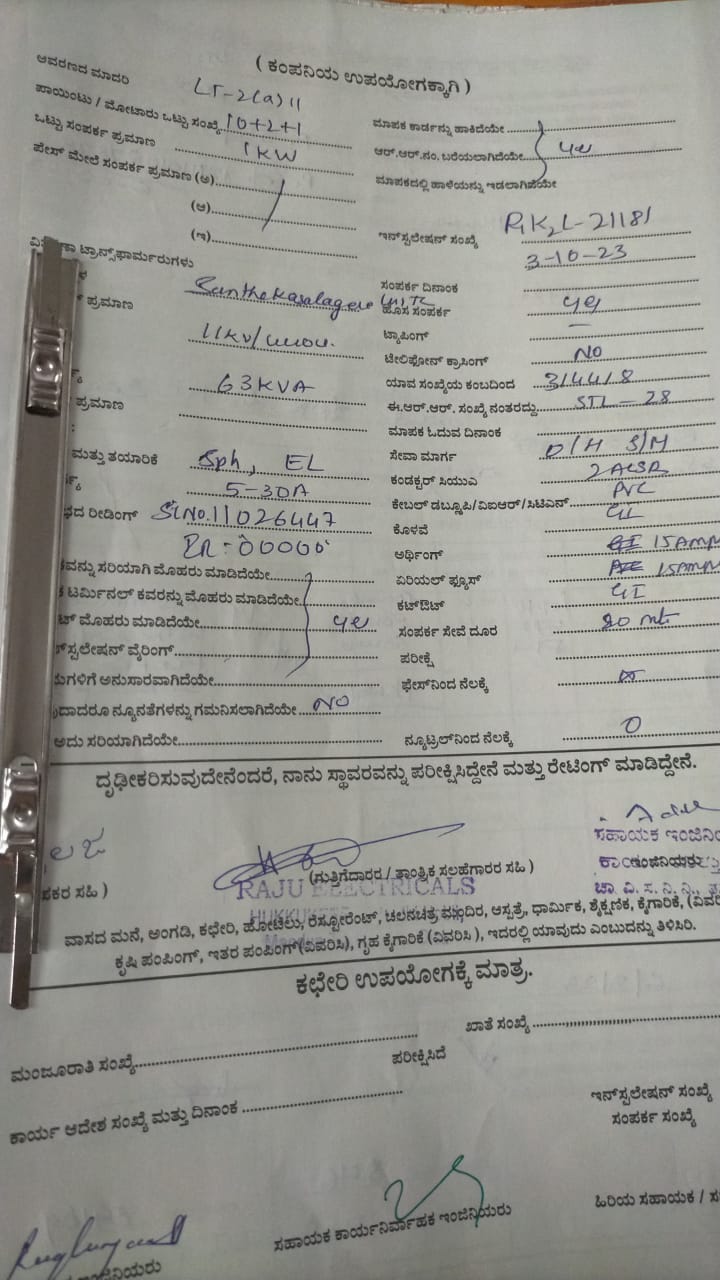 ( ಕಂಪನಿಯ ಉಪಯೋಗಕ್ಕಾಗಿ )
ಆವರಣದ ಮಾದರಿ LT-2(a)11
ಪಾಯಿಂಟು / ಮೋಟಾರು ಒಟ್ಟು ಸಂಖ್ಯೆ 10+2+1
ಒಟ್ಟು ಸಂಪರ್ಕ ಪ್ರಮಾಣ 1KW
ಪೇಸ್ ಮೇಲೆ ಸಂಪರ್ಕ ಪ್ರಮಾಣ (ಅ)
(ಆ)
(ಇ)
ಟ್ರಾನ್ಸ್‌ಫಾರ್ಮರುಗಳು
Santhekasalagere
ಪ್ರಮಾಣ
11KV/
63KVA
ಪ್ರಮಾಣ
ಮತ್ತು ತಯಾರಿಕೆ Sph, EL
5-30A
ರೀಡಿಂಗ್ SlNo.11026447
00000
ಸರಿಯಾಗಿ ಮೊಹರು ಮಾಡಿದೆಯೇ
ಟರ್ಮಿನಲ್ ಕವರನ್ನು ಮೊಹರು ಮಾಡಿದೆಯೇ
ಮೊಹರು ಮಾಡಿದೆಯೇ yes
ವೈರಿಂಗ್
ಅನುಸಾರವಾಗಿದೆಯೇ
ನ್ಯೂನತೆಗಳನ್ನು ಗಮನಿಸಲಾಗಿದೆಯೇ NO
ಅದು ಸರಿಯಾಗಿದೆಯೇ
ಮಾಪಕ ಕಾರ್ಡನ್ನು ಹಾಕಿದೆಯೇ
ಆರ್.ಆರ್.ನಂ. ಬರೆಯಲಾಗಿದೆಯೇ yes
ಮಾಪಕದಲ್ಲಿ ಹಾಳೆಯನ್ನು ಇಡಲಾಗಿದೆಯೇ
ಇನ್‌ಸ್ಟಲೇಷನ್ ಸಂಖ್ಯೆ
3-10-23
ಸಂಪರ್ಕ ದಿನಾಂಕ
ಹೊಸ ಸಂಪರ್ಕ yes
ಟ್ಯಾಪಿಂಗ್ —
ಟೆಲಿಫೋನ್ ಕ್ರಾಸಿಂಗ್ NO
ಯಾವ ಸಂಖ್ಯೆಯ ಕಂಬದಿಂದ 3/44/8
ಈ.ಆರ್.ಆರ್. ಸಂಖ್ಯೆ ನಂತರದ್ದು STL-28
ಮಾಪಕ ಓದುವ ದಿನಾಂಕ
ಸೇವಾ ಮಾರ್ಗ O/H S/M
ಕಂಡಕ್ಟರ್ ಸಿಯುಎ 2ACSR
ಕೇಬಲ್ ಡಬ್ಲ್ಯೂಪಿ/ವಿಐಆರ್/ಸಿಟಿಎಸ್ PVC
ಕೊಳವೆ GI
ಅರ್ಥಿಂಗ್ 15AMP
ಏರಿಯಲ್ ಫ್ಯೂಸ್ 15AMP
ಕಟ್‌ಔಟ್ GI
ಸಂಪರ್ಕ ಸೇವೆ ದೂರ
ಪರೀಕ್ಷೆ
ಫೇಸ್‌ನಿಂದ ನೆಲಕ್ಕೆ
ನ್ಯೂಟ್ರಲ್‌ನಿಂದ ನೆಲಕ್ಕೆ 0
ದೃಢೀಕರಿಸುವುದೇನೆಂದರೆ, ನಾನು ಸ್ಥಾವರವನ್ನು ಪರೀಕ್ಷಿಸಿದ್ದೇನೆ ಮತ್ತು ರೇಟಿಂಗ್ ಮಾಡಿದ್ದೇನೆ.
ಸಹಾಯಕ ಇಂಜಿನಿ
(ಗುತ್ತಿಗೆದಾರರ / ತಾಂತ್ರಿಕ ಸಲಹೆಗಾರರ ಸಹಿ )
RAJU ELECTRICALS
ಚಾ. ವಿ. ಸ. ನಿ. ನಿ.,
ವಾಸದ ಮನೆ, ಅಂಗಡಿ, ಕಛೇರಿ, ಹೋಟೆಲು, ರೆಸ್ಟೋರೆಂಟ್, ಚಲನಚಿತ್ರ ಮಂದಿರ, ಆಸ್ಪತ್ರೆ, ಧಾರ್ಮಿಕ, ಶೈಕ್ಷಣಿಕ, ಕೈಗಾರಿಕೆ, (ವಿವರಿ
ಕೃಷಿ ಪಂಪಿಂಗ್, ಇತರ ಪಂಪಿಂಗ್ (ವಿವರಿಸಿ), ಗೃಹ ಕೈಗಾರಿಕೆ (ವಿವರಿಸಿ ), ಇದರಲ್ಲಿ ಯಾವುದು ಎಂಬುದನ್ನು ತಿಳಿಸಿರಿ.
ಕಛೇರಿ ಉಪಯೋಗಕ್ಕೆ ಮಾತ್ರ.
ಖಾತೆ ಸಂಖ್ಯೆ
ಮಂಜೂರಾತಿ ಸಂಖ್ಯೆ
ಪರೀಕ್ಷಿಸಿದೆ
ಕಾರ್ಯ ಆದೇಶ ಸಂಖ್ಯೆ ಮತ್ತು ದಿನಾಂಕ
ಇನ್‌ಸ್ಟಲೇಷನ್ ಸಂಖ್ಯೆ
ಸಂಪರ್ಕ ಸಂಖ್ಯೆ
ಸಹಾಯಕ ಕಾರ್ಯನಿರ್ವಾಹಕ ಇಂಜಿನಿಯರು
ಹಿರಿಯ ಸಹಾಯಕ /